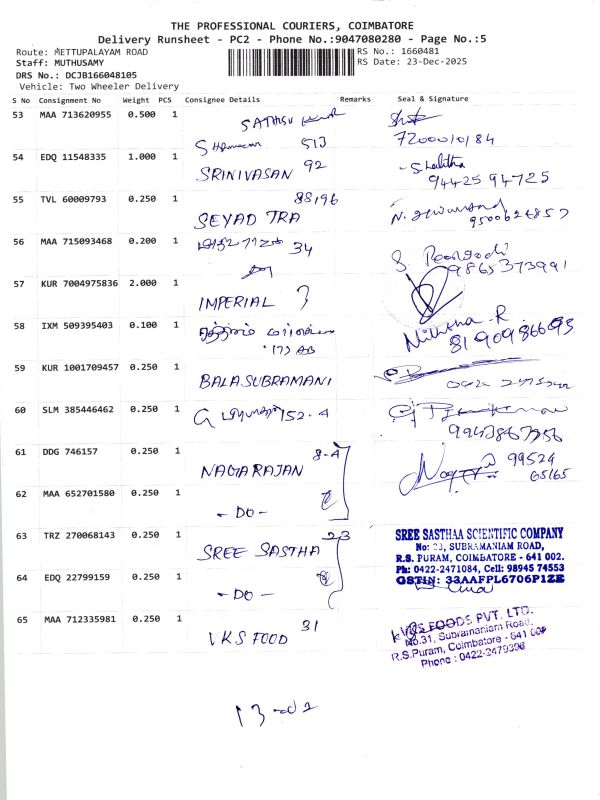 THE PROFESSIONAL COURIERS, COIMBATORE
Delivery Runsheet - PC2 - Phone No.:9047080280 - Page No.:5
Route: METTUPALAYAM ROAD
RS No.: 1660481
Staff: MUTHUSAMY
RS Date: 23-Dec-2025
DRS No.: DCJB166048105
Vehicle: Two Wheeler Delivery
S No Consignment No Weight PCS Consignee Details Remarks Seal & Signature
53 MAA 713620955 0.500 1
513
7200010184
54 EDQ 11548335 1.000 1
SRINIVASAN 92
94425 94725
55 TVL 60009793 0.250 1
88196
SEYAD TRA
9500624857
56 MAA 715093468 0.200 1
34
9865373991
57 KUR 7004975836 2.000 1
IMPERIAL 3
58 IXM 509395403 0.100 1
Nithna.R
8190986693
59 KUR 1001709457 0.250 1
BALA.SUBRAMANI
60 SLM 385446462 0.250 1
152-A
9942867956
61 DDG 746157 0.250 1
8-A
NAGARAJAN
99524
65165
62 MAA 652701580 0.250 1
- DO -
63 TRZ 270068143 0.250 1
23
SREE SASTHA
SREE SASTHAA SCIENTIFIC COMPANY
No: 23, SUBRAMANIAM ROAD,
R.S. PURAM, COIMBATORE - 641 002.
Ph: 0422-2471084, Cell: 98945 74553
GSTIN: 33AAFPL6706P1ZE
64 EDQ 22799159 0.250 1
- DO -
65 MAA 712335981 0.250 1
VKS FOOD 31
VKS FOODS PVT. LTD.
No.31, Subramaniam Road,
R.S.Puram, Coimbatore - 641 002
Phone : 0422-2479396